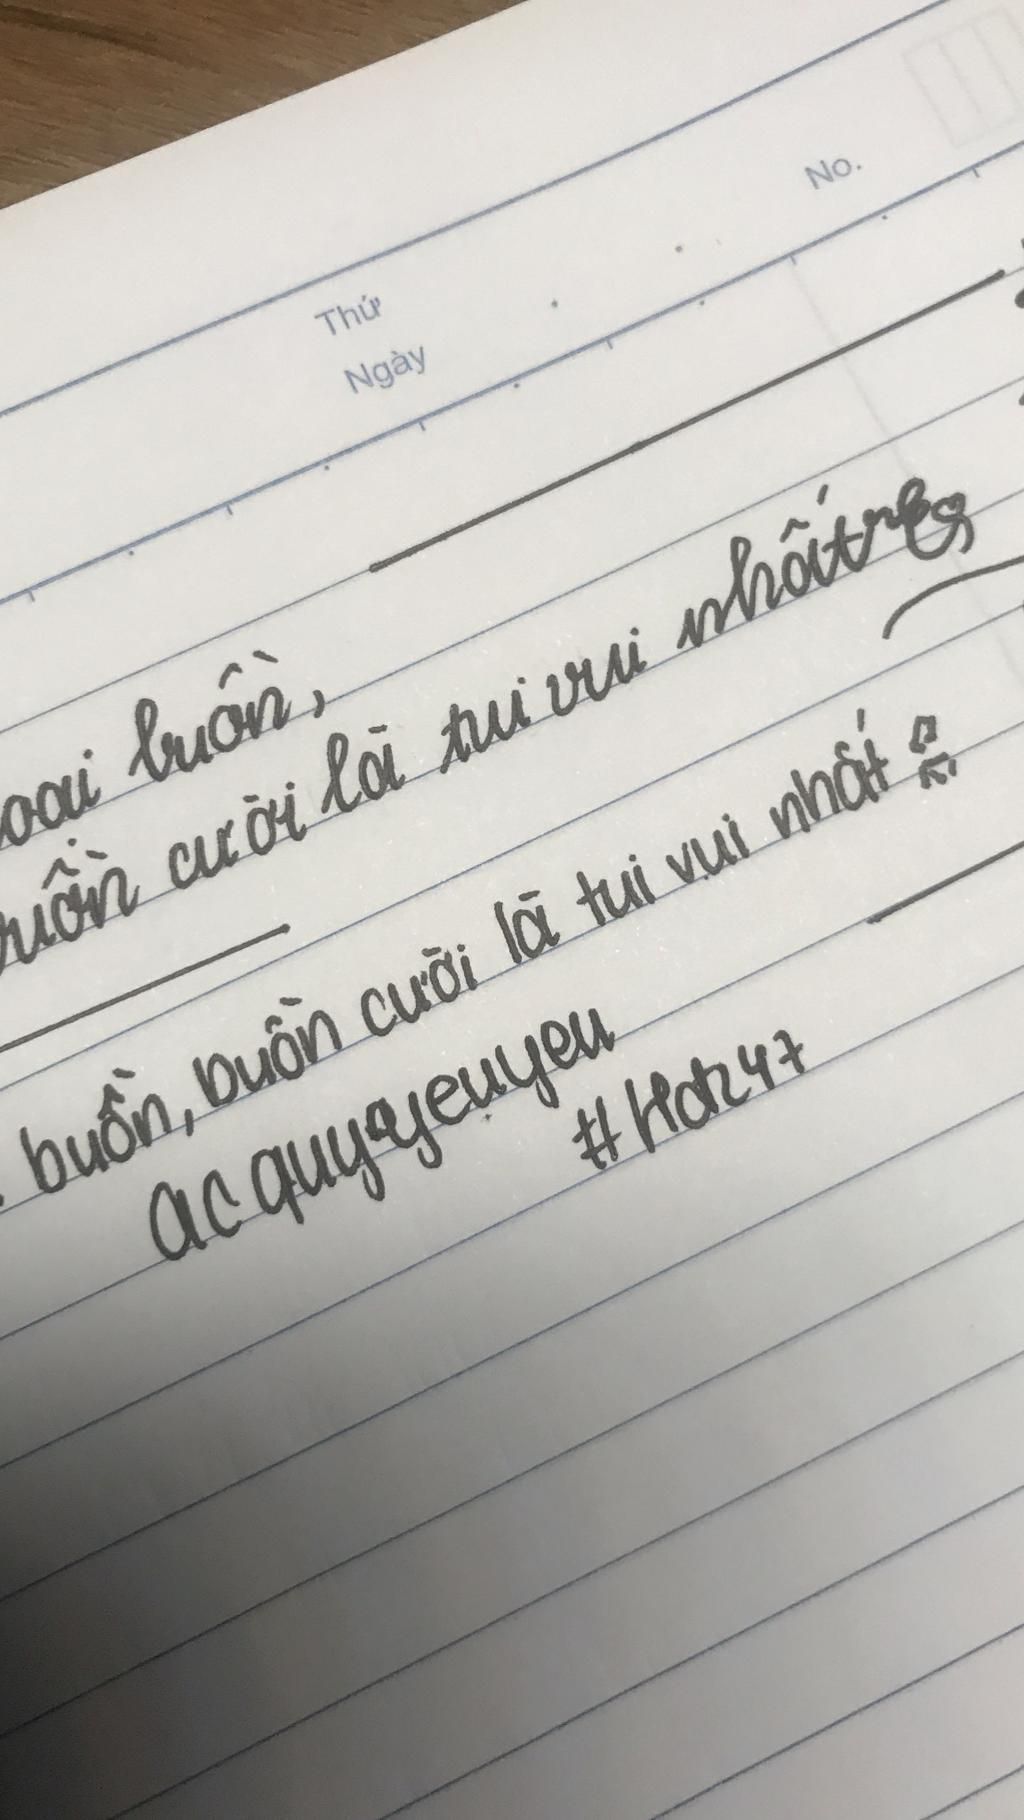 No.
Thứ
Ngày
loại buồn,
buồn cười là tui vui nhất
buồn, buồn cười là tui vui nhất
acquyyeuyeu
#Hdr247